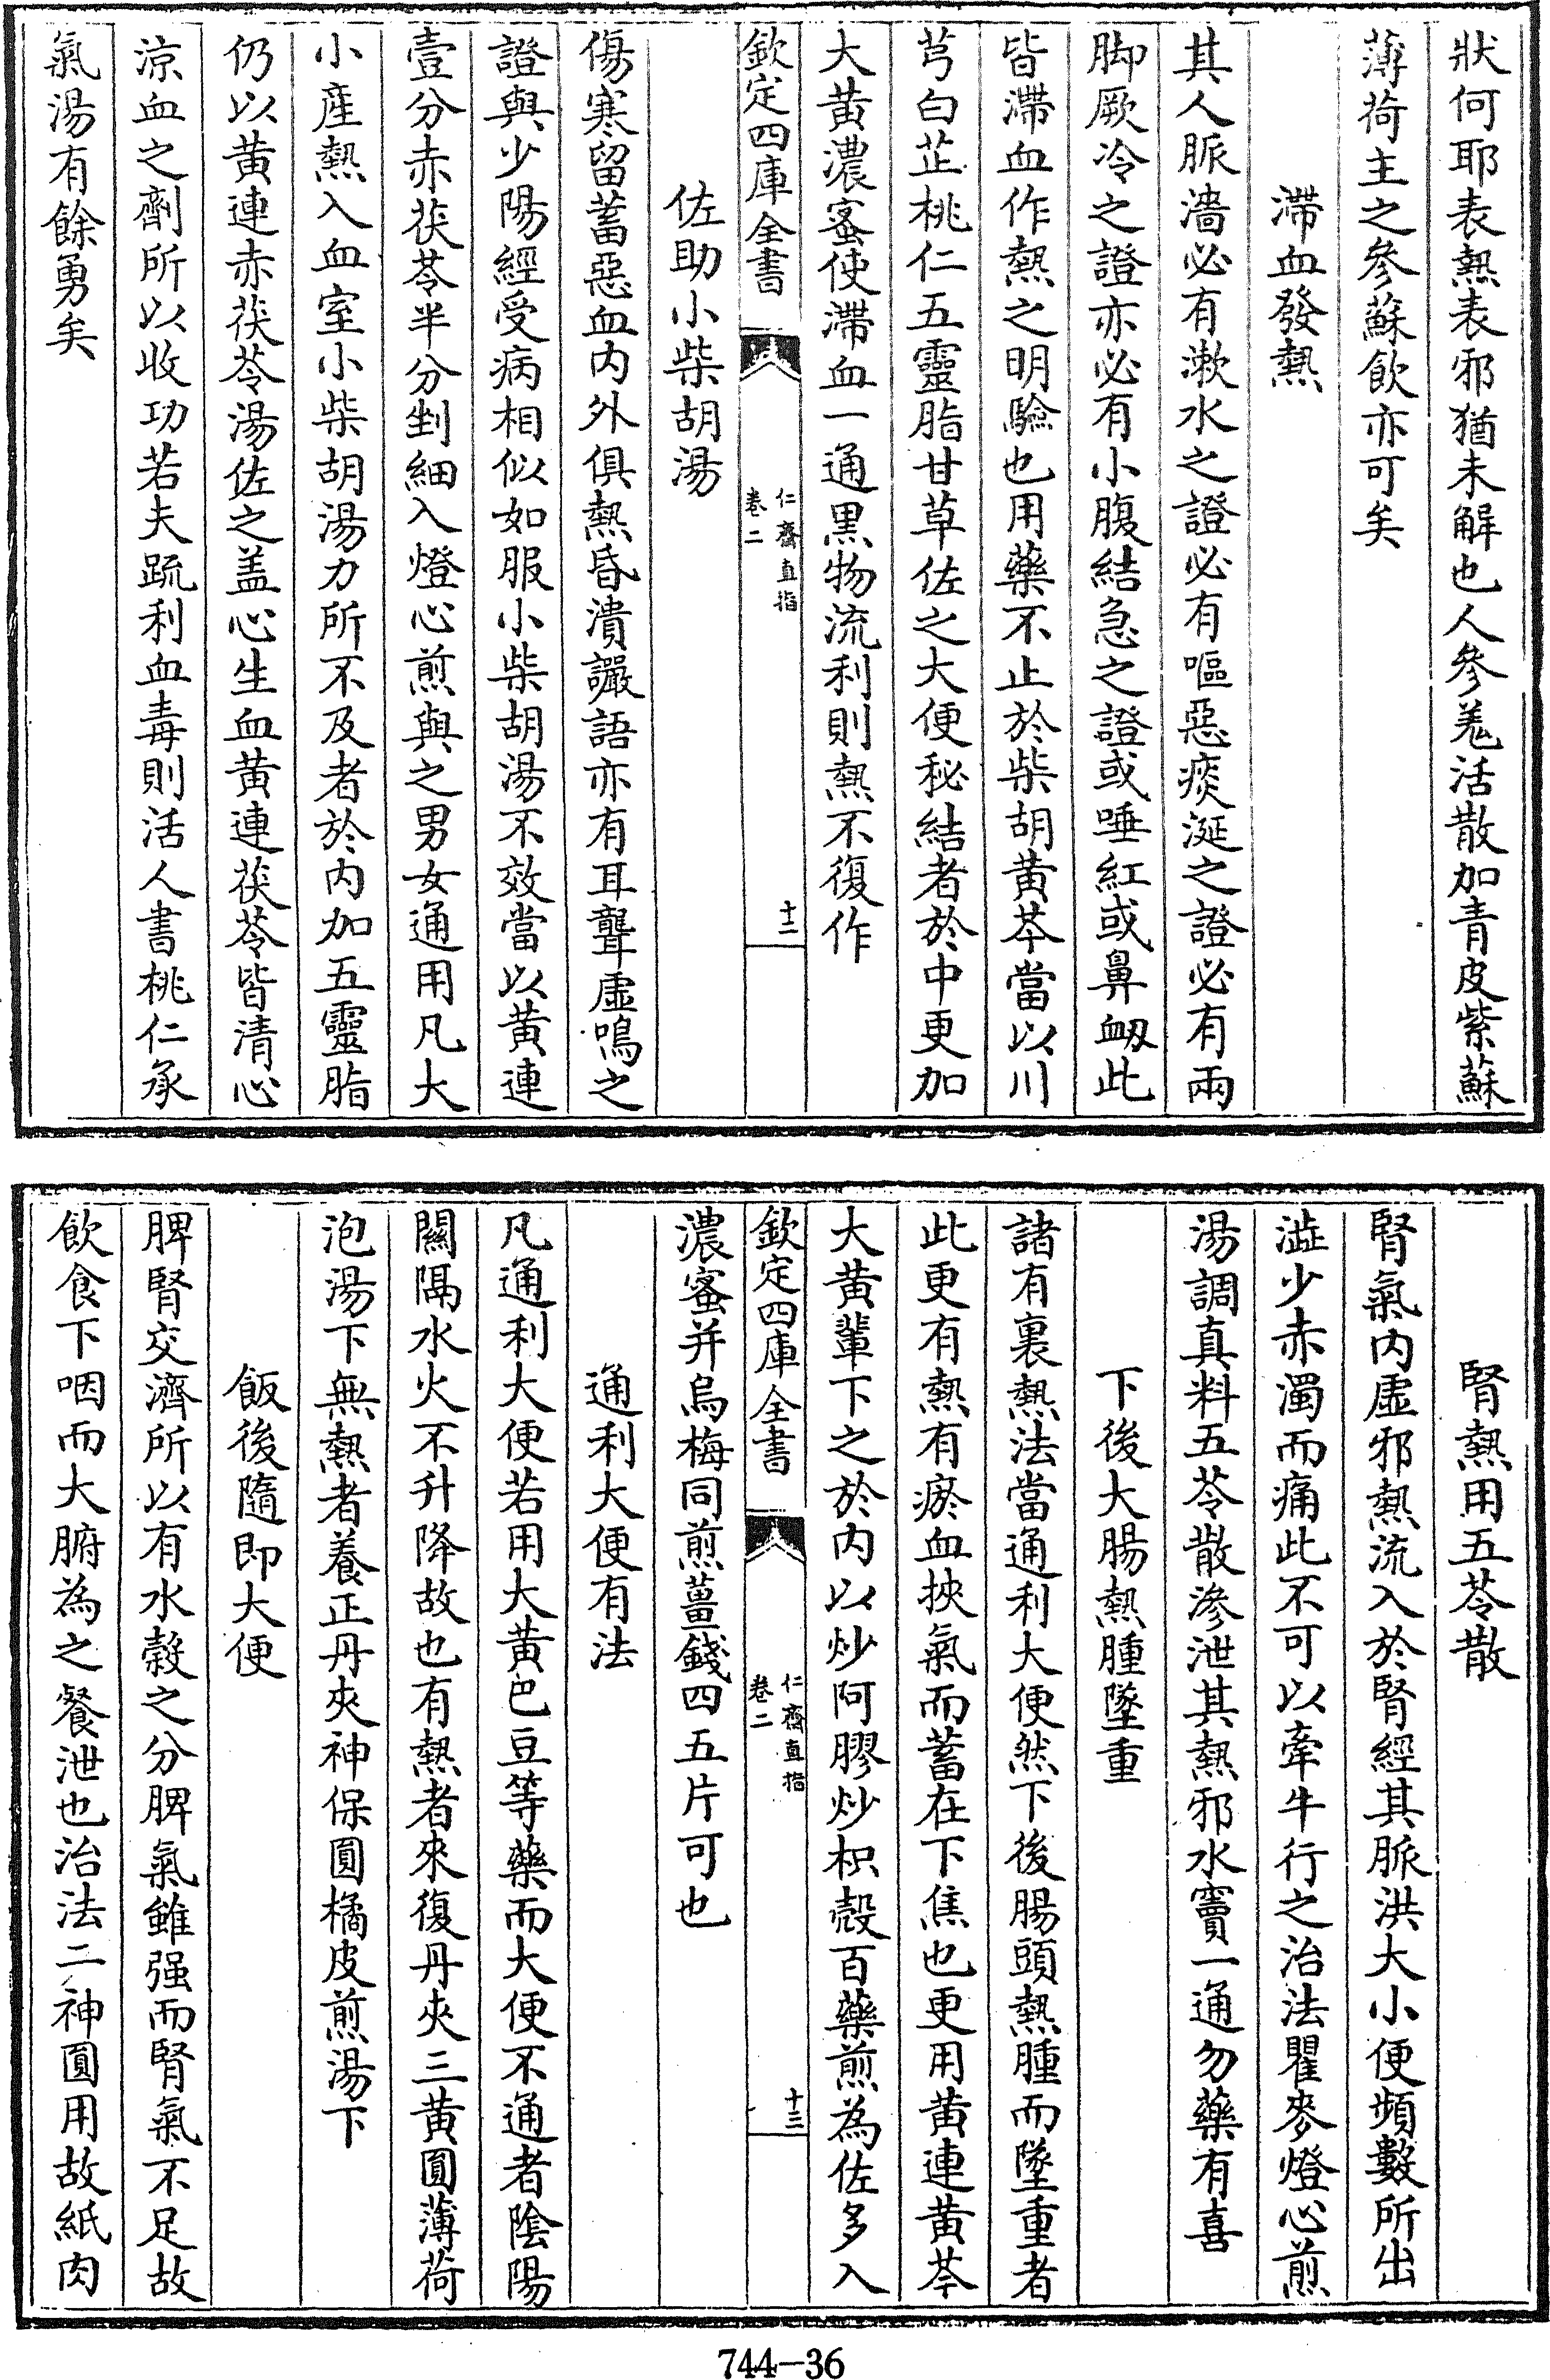 狀何耶表熱表邪猶未解也人參羗活散加青皮紫蘇
薄荷主之參蘇飲亦可矣
滯血發熱
其人脈濇必有漱水之證必有嘔惡痰涎之證必有兩
脚厥冷之證亦必有小腹結急之證或唾紅或鼻衂此
皆滯血作熱之明驗也用藥不止於柴胡黄芩當以川
芎白芷桃仁五靈脂甘草佐之大便秘結者於中更加
大黄濃蜜使滯血一通黒物流利則熱不復作
欽定四庫全書
仁齋直指
卷二
十二
佐助小柴胡湯
傷寒留蓄惡血内外俱熱昏潰讝語亦有耳聾虚鳴之
證與少陽經受病相似如服小柴胡湯不效當以黄連
壹分赤茯苓半分剉細入燈心煎與之男女通用凡大
小產熱入血室小柴胡湯力所不及者於内加五靈脂
仍以黄連赤茯苓湯佐之盖心生血黄連茯苓皆清心
涼血之劑所以收功若夫䟽利血毒則活人書桃仁承
氣湯有餘勇矣
腎熱用五苓散
腎氣内虚邪熱流入於腎經其脈洪大小便頻數所出
澁少赤濁而痛此不可以牽牛行之治法瞿麥燈心煎
湯調真料五苓散滲泄其熱邪水竇一通勿藥有喜
下後大腸熱腫墜重
諸有裏熱法當通利大便然下後腸頭熱腫而墜重者
此更有熱有瘀血挾氣而蓄在下焦也更用黄連黄芩
大黄輩下之於内以炒阿膠炒枳殻百藥煎為佐多入
欽定四庫全書
仁齋直指
卷二
十三
濃蜜并烏梅同煎薑錢四五片可也
通利大便有法
凡通利大便若用大黄巴豆等藥而大便不通者陰陽
關隔水火不升降故也有熱者來復丹夾三黄圓薄荷
泡湯下無熱者養正丹夾神保圓橘皮煎湯下
飯後隨即大便
脾腎交濟所以有水穀之分脾氣雖强而腎氣不足故
飲食下咽而大腑為之餐泄也治法二神圓用故紙肉
744-36